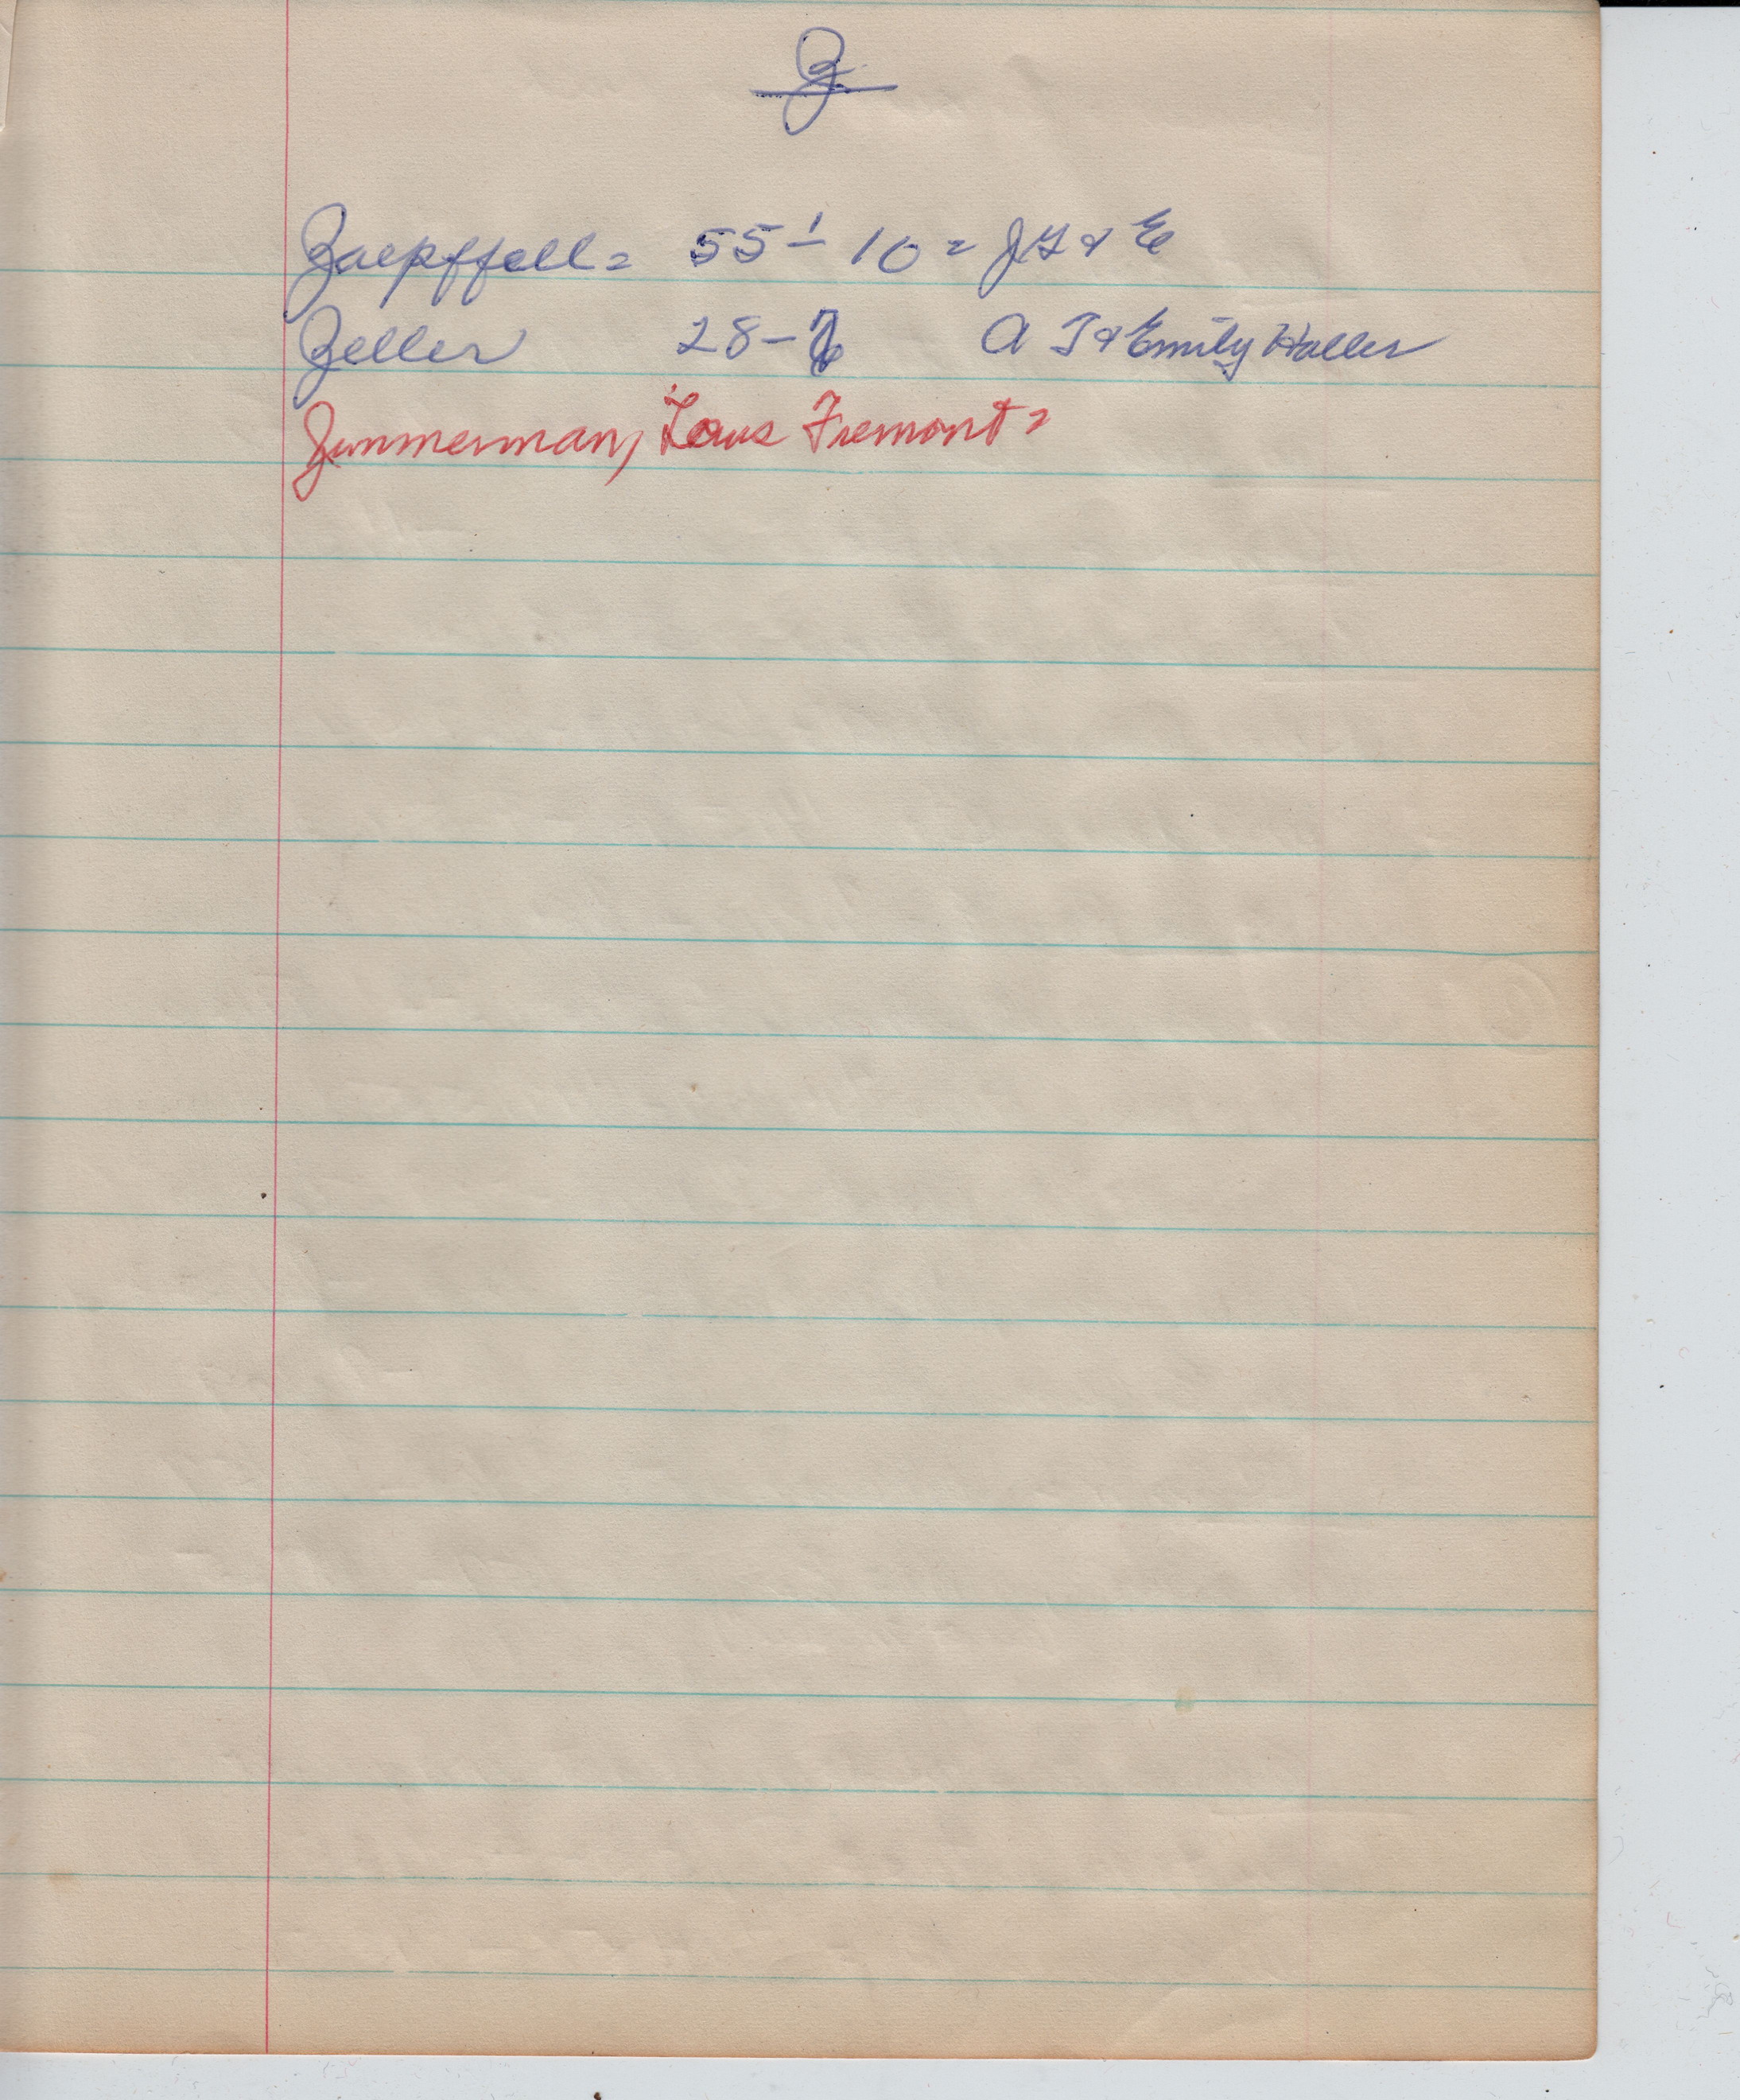 Z
Zaepffell = 55 - 10 = J Z & E
Zeller 28 - 6 A J & Emily Haller
Zimmerman, Lous Fremont =